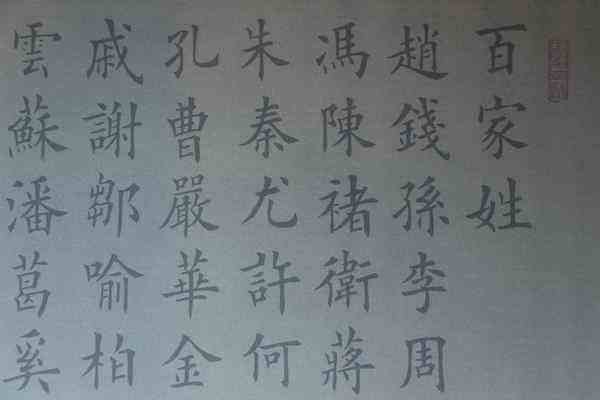 百家姓
趙錢孫李周
馮陳褚衛蔣
朱秦尤許何
孔曹嚴華金
戚謝鄒喻柏
雲蘇潘葛奚